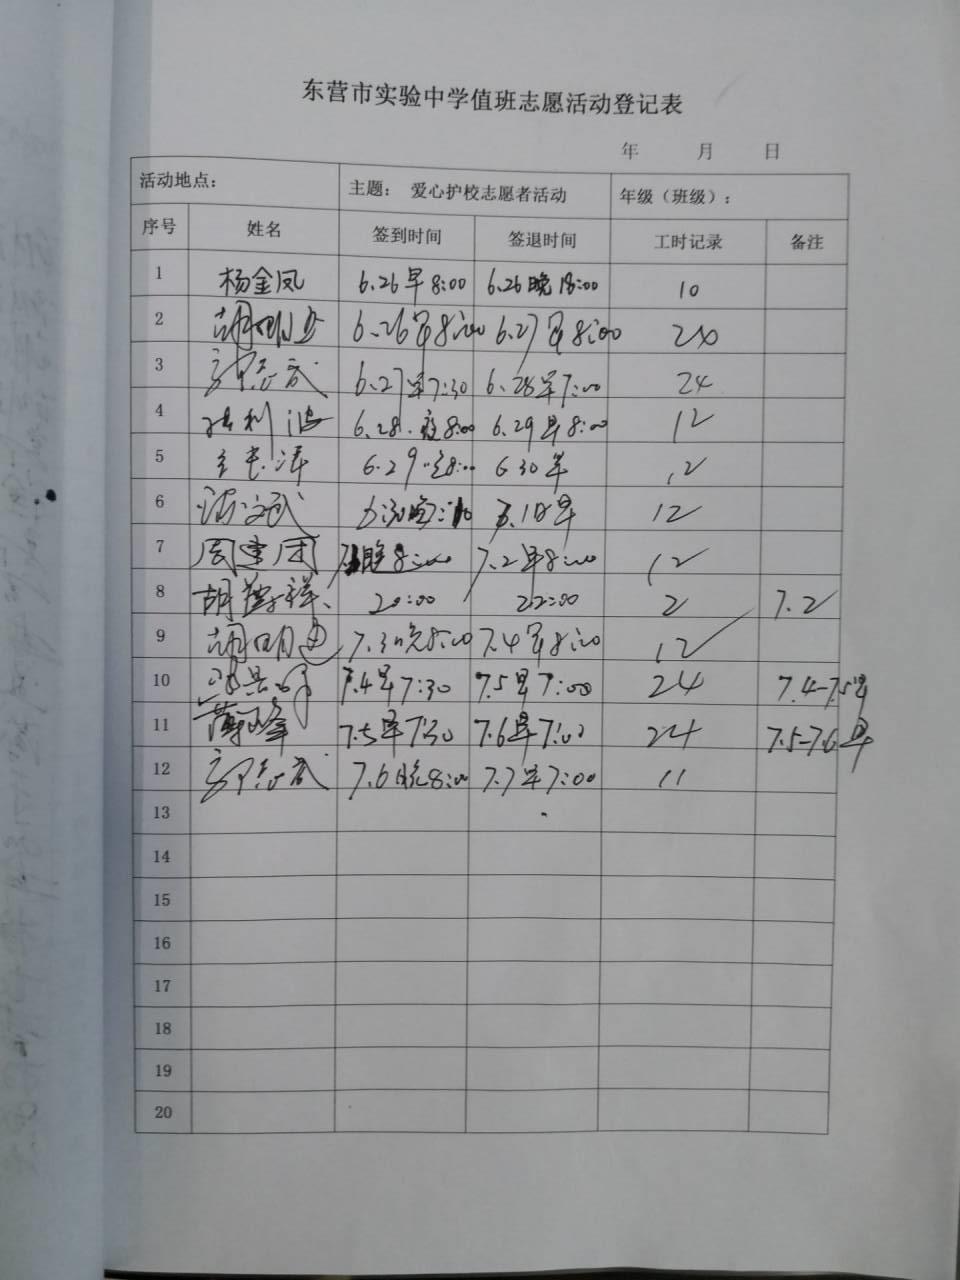 东营市实验中学值班志愿活动登记表
年 月 日
活动地点： 主题： 爱心护校志愿者活动 年级（班级）：
序号 姓名 签到时间 签退时间 工时记录 备注
1 杨金凤 6.26早8:00 6.26晚18:00 10
2 胡明 6.26早8:00 6.27早8:00
3 郭志武 6.27早7:30 6.28早7:00 24
4 利波 6.28.夜8:00 6.29早8:00 12
5 6.29 8:00 6.30早 12
6 武 早 12
7 周建团 晚8:00 7.2早8:00 12
8 胡 祥 20:00 22:00 2 7.2
9 胡明 7.3晚8:00 7.4早8:00 12
10 7.4早7:30 7.5早7:00 24 7.4-7.5早
11 峰 7.5早7:30 7.6早7:00 24 7.5-7.6早
12 郭志武 7.6晚8:00 7.7早7:00 11
13
14
15
16
17
18
19
20